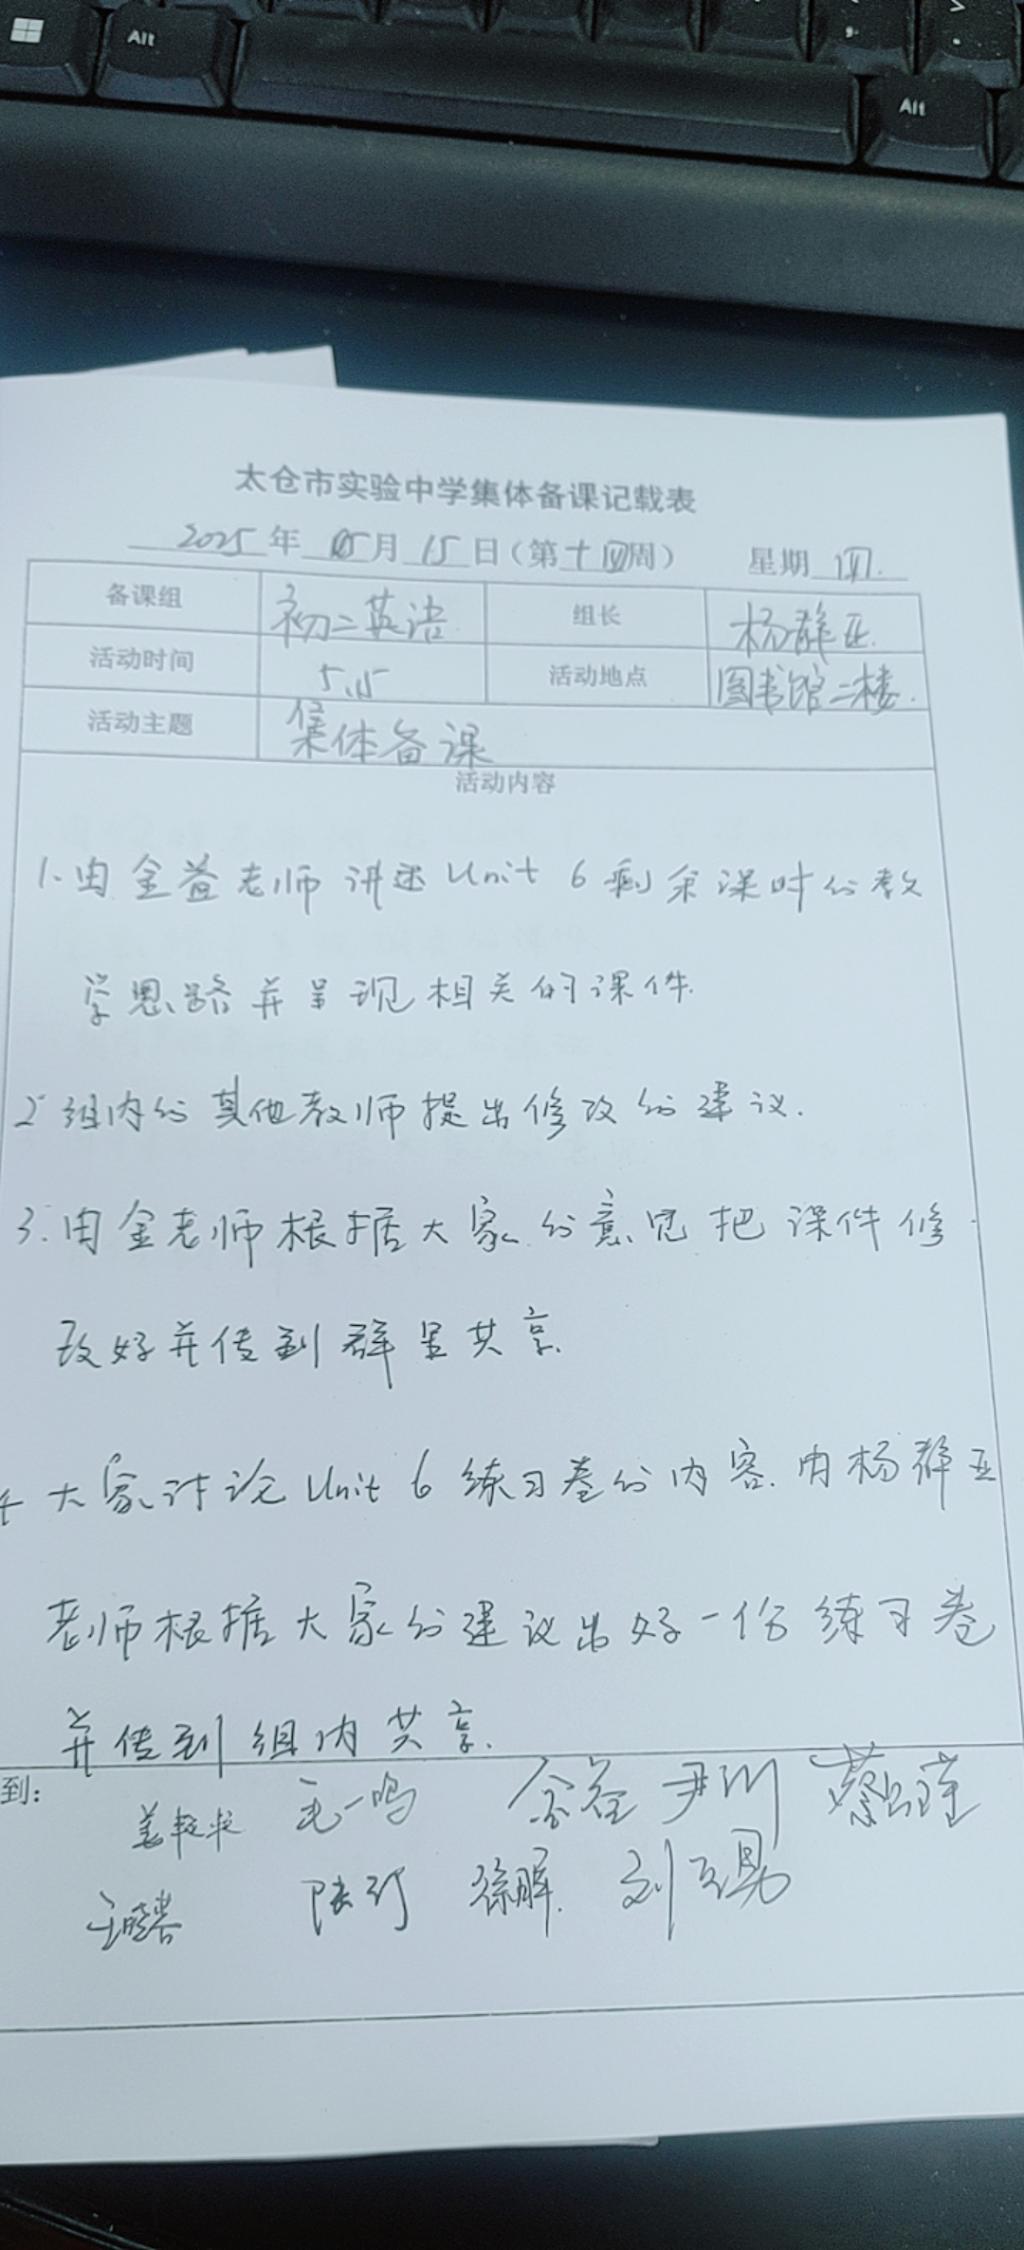 Alt
Alt
太仓市实验中学集体备课记载表
2025年 05月 15日(第十四周) 星期 四.
备课组 初二英语 组长 杨静亚.
活动时间 5.15 活动地点 图书馆二楼.
活动主题 集体备课
活动内容
1.由金益老师讲述Unit 6剩余课时的教
学思路并呈现相关的课件.
2 组内的其他教师提出修改的建议.
3.由金老师根据大家的意见把课件修
改好并传到群里共享.
4 大家讨论Unit 6练习卷的内容.由杨静亚
老师根据大家的建议出好一份练习卷
并传到组内共享.
到:
毛一鸣 金益 尹川
徐晖.